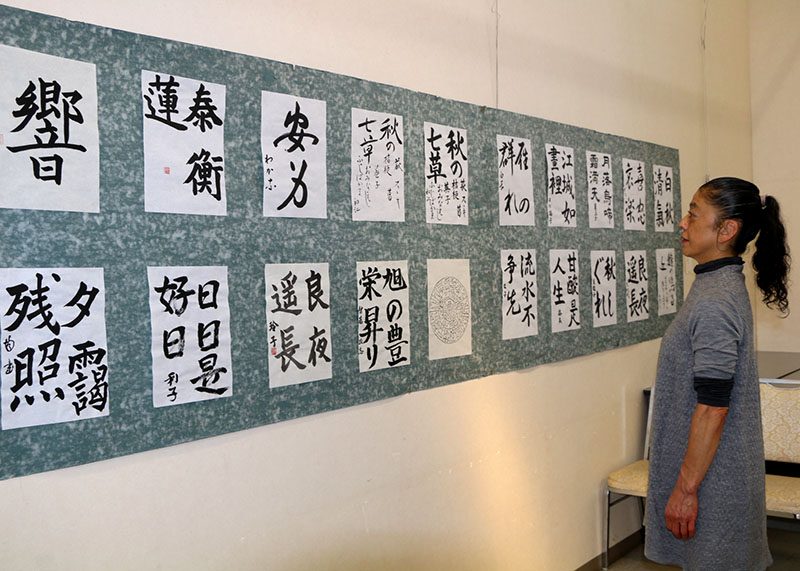 響
泰衡
蓮
安
秋の
七草
秋の
七草
雁の
群れ
江城如
畫裡
月落烏啼
霜満天
喜怒
哀楽
白秋
清氣
夕靄
残照
日日是
好日
利子
良夜
遥長
玲子
旭の豊
栄昇り
流水不
争先
甘酸是
人生
秋し
ぐれ
良夜
遥長